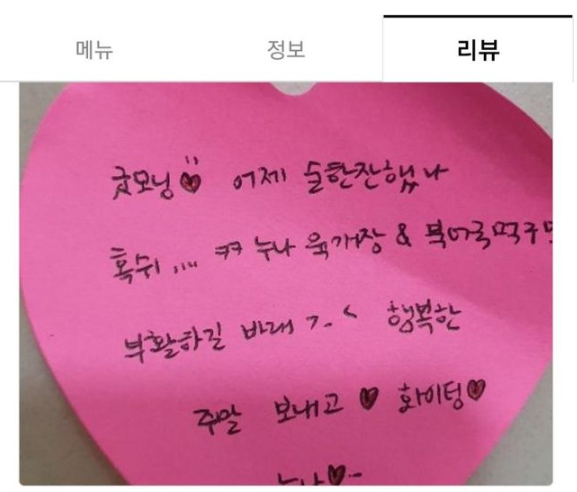 메뉴 정보 리뷰
굿모닝♥ 어제 술한잔했나
혹쉬.... ㅋㅋ 누나 육개장 & 북어국먹구
부활하길 바래 ㄱ.< 행복한
주말 보내고 ♥ 화이팅♥
누나♥..